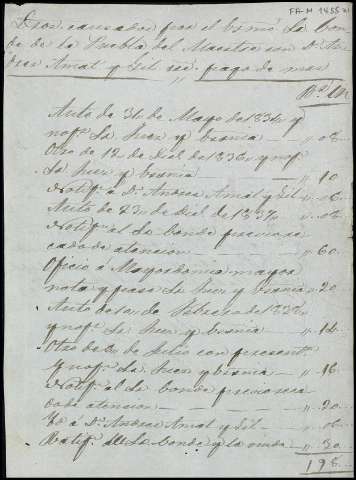 FA-M 1455
Dros causados por el Exmo Sr Con
de de la Puebla del Maestre con Dn An
dres Amat y Gil pago de mrs
Rs Vn
Auto de 31 de Mayo de 1834 y
nofn Sr Juez y Escnia - " 08
Otro de 12 de Dbl de 1836 y nofn
Sr Juez y Escnia - " 10
Notifn á Dn Andres Amat y Gil - " 06
Auto de 23 de Dbl de 1837 - " 08
Notifn al Sr Conde previo re
cado de atencion - " 60
Oficio á Mayordomia mayor
nota y paso Sr Juez y Escnia - " 20
Auto de de Febrero de 1838
y nofn Sr Juez y Escnia - " 14
Otro de de Julio con present
y nofn Sr Juez y Escnia - " 16
Notifn al Sr Conde previo re
cado atencion - " 20
Yd á Dn Andres Amat y Gil - " 06
Ratifn del Sr Conde y la - " 30
198